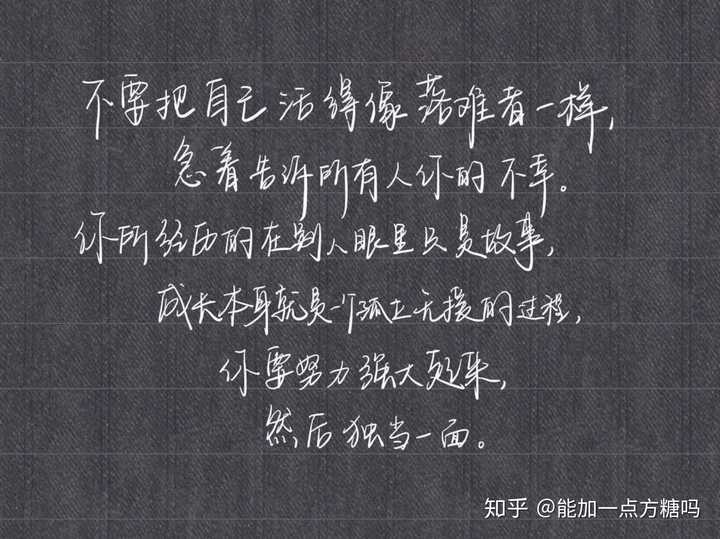 不要把自己活得像落难者一样，
急着告诉所有人你的不幸。
你所经历的在别人眼里只是故事，
成长本身就是一个孤立无援的过程，
你要努力强大起来，
然后独当一面。
知乎 @能加一点方糖吗